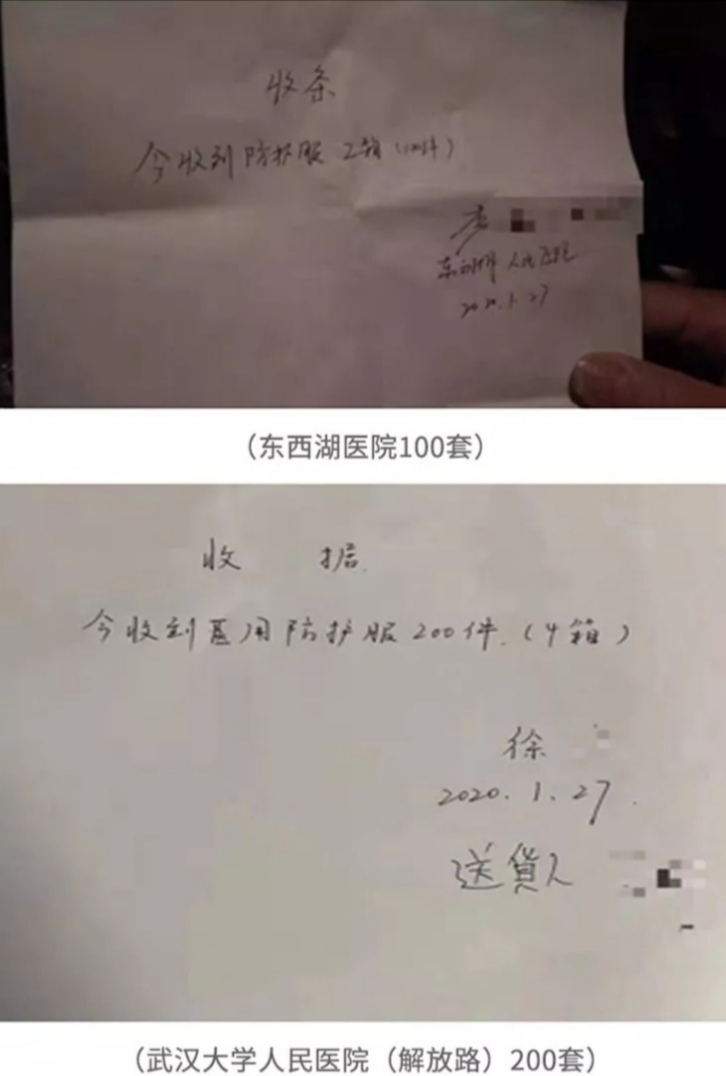 收条
今收到防护服 2箱（100件）
李
东西湖人民医院
2020.1.27
（东西湖医院100套）
收 据.
今收到医用防护服200件.（4箱）
徐
2020.1.27.
送貨人
（武汉大学人民医院（解放路）200套）